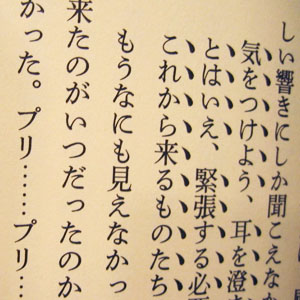 しい響きにしか聞こえなか
気をつけよう、耳を澄
とはいえ、緊張する必
これから来るものたち
もうなにも見えなかっ
来たのがいつだったのか
かった。プリ……プリ…